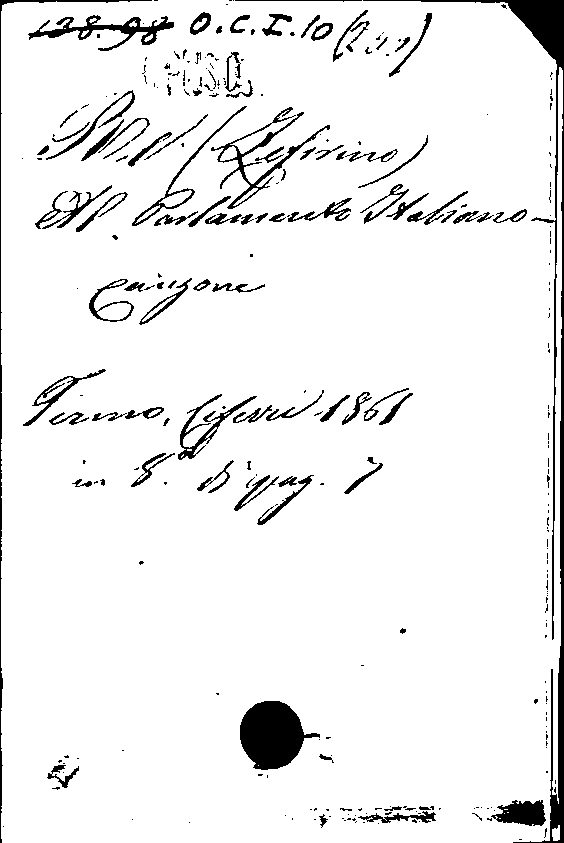 138.98 O.C.I.10
OPUSC.
(Zefirino)
Al Parlamento Italiano -
Canzone
Fermo, Ciferri 1861
in 8.° di pag. 7